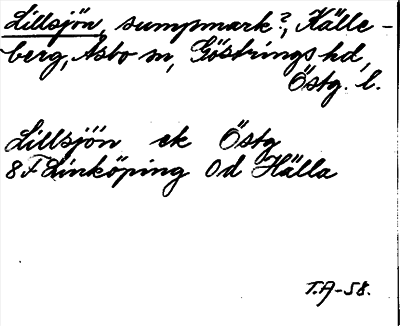 Lillsjön, sumpmark?, Källe-
berg, Åsbo sn, Göstrings hd,
Östg. l.
Lillsjön ek Östg
8F Linköping 0d Hälla
T.A-58.